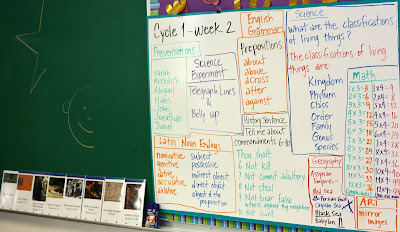 Cycle 1 - Week 2
Presentations
Sarah
Meredith
Abigail
Hans
John
Jonathan
Daniel
Science
Experiment
Telegraph Lines
&
Belly up
English
Grammar
Prepositions
about
above
across
after
against
History Sentence
Tell me about
commandments 6-10
Latin - Noun Endings
nominative
genitive
dative
accusative
ablative
subject
possessive
indirect object
direct object
object of the
preposition
Thou shalt...
6 Not kill
7 Not commit adultery
8 Not steal
9 Not bear false
witness against thy neighbor
10 Not covet
Science
What are the classifications
of living things?
The classifications of living
things are
Kingdom
Phylum
Class
Order
Family
Genus
Species
Math
1x3=3
2x3=6
3x3=9
4x3=12
5x3=15
6x3=18
7x3=21
8x3=24
9x3=27
10x3=30
11x3=33
12x3=36
1x4=4
2x4=8
3x4=12
Geography
Assyrian
Empire
Red Sea
Persian Gulf
Caspian Sea
Black Sea
Babylon
ART
mirror
images